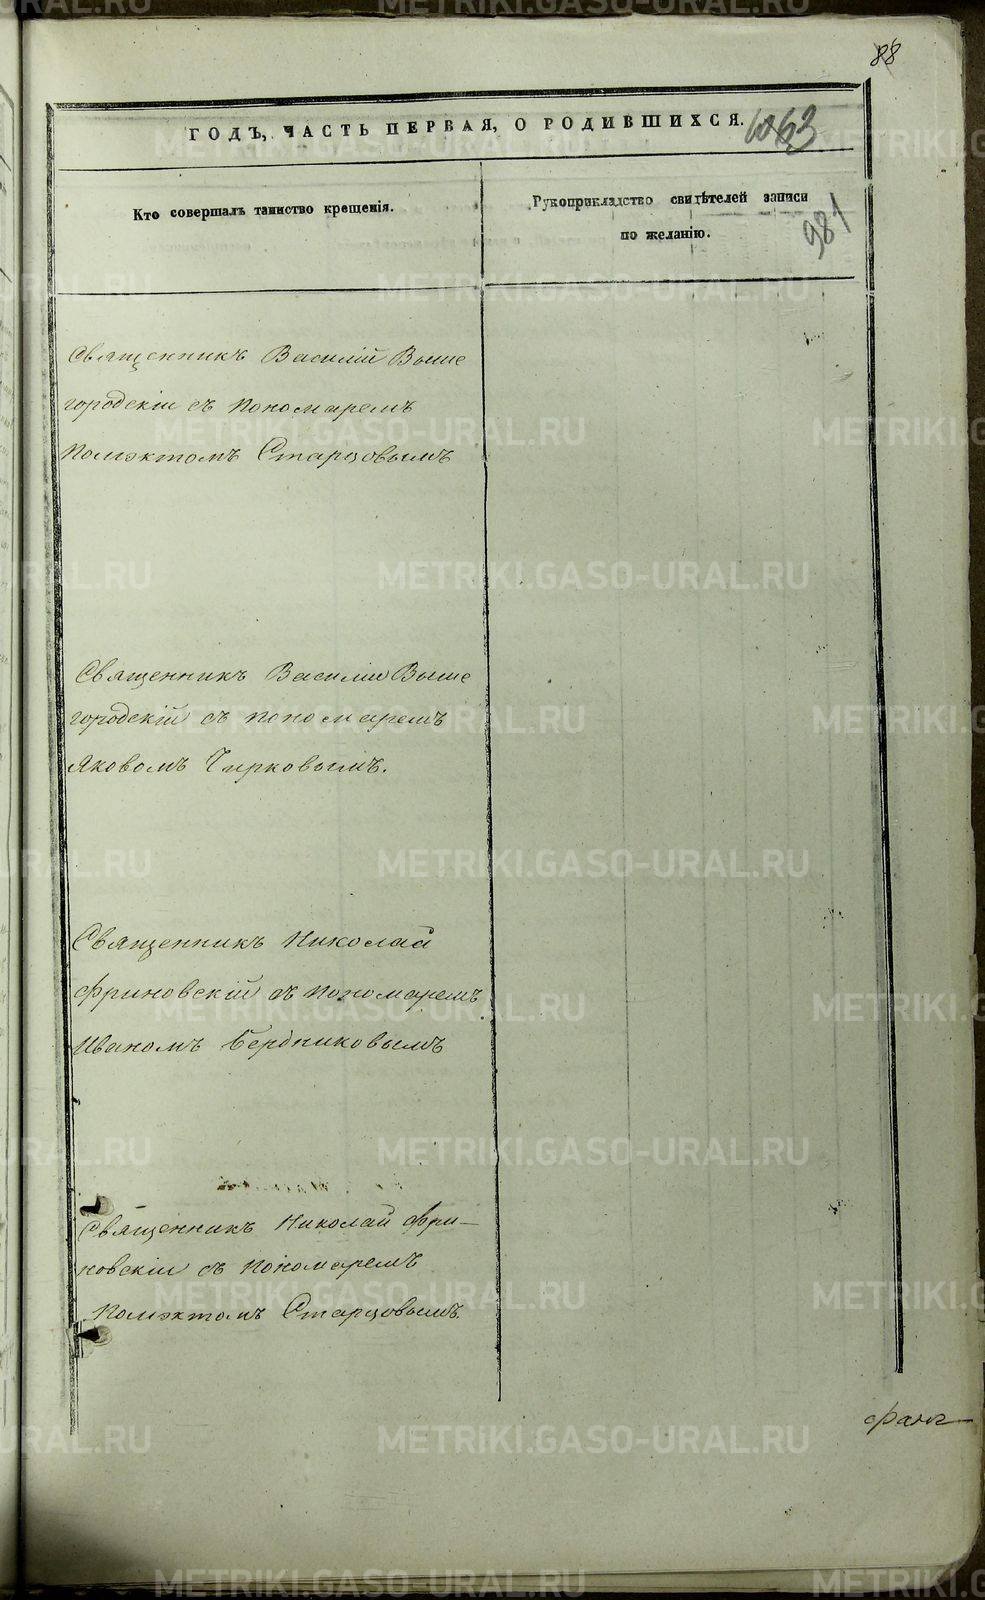 88
ГОДЪ, ЧАСТЬ ПЕРВАЯ, О РОДИВШИХСЯ.
63
Кто совершалъ таинство крещенія.
Рукоприкладство свидѣтелей записи
по желанію.
981
Священникъ Василій Выше
городскій съ пономаремъ
Полиэктомъ Старцовымъ
Священникъ Василій Выше
городскій съ пономаремъ
Яковомъ Чирковымъ.
Священникъ Николай
Фриновскій съ пономаремъ
Иваномъ Бердниковымъ
Священникъ Николай Фри-
новскій съ пономаремъ
Полиэктомъ Старцовымъ.
METRIKI.GASO-URAL.RU